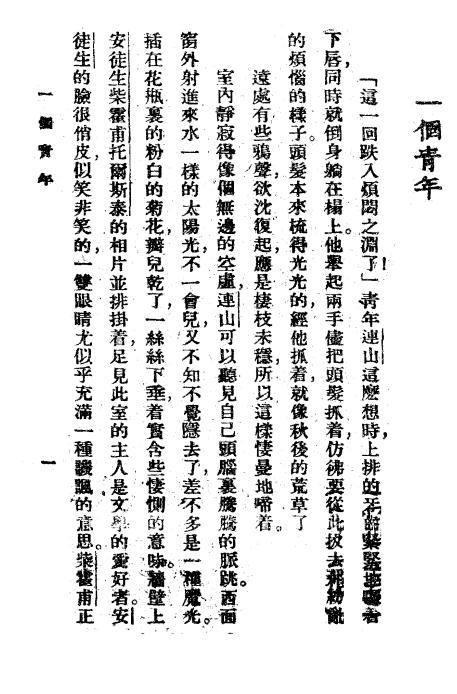 一個青年
「這一回跌入煩悶之淵了！」青年連山這麽想時，上排的牙齒緊緊地嚙着
下唇，同時就倒身躺在榻上。他舉起兩手儘把頭髮抓着，仿彿要從此拔去
的煩惱的樣子。頭髮本來梳得光光的，經他抓着就像秋後的荒草了
遠處有些鴉聲，欲沈復起，應是棲枝未穩，所以這樣悽曼地啼着。
室內靜寂得像個無邊的空虛，連山可以聽見自己頭腦裏騰騰的脈跳。西面
窗外射進來水一樣的太陽光，不一會兒，又不知不覺隱去了，差不多是一種魔光。
插在花瓶裏的粉白的菊花，瓣兒乾了，一絲絲下垂着，實含些悽惻的意味。牆壁上
安徒生柴霍甫托爾斯泰的相片並排掛着，足見此室的主人是文學的愛好者。安
徒生的臉很俏皮，似笑非笑的，一雙眼睛尤似乎充滿一種譏諷的意思。柴霍甫正
一個青年
一